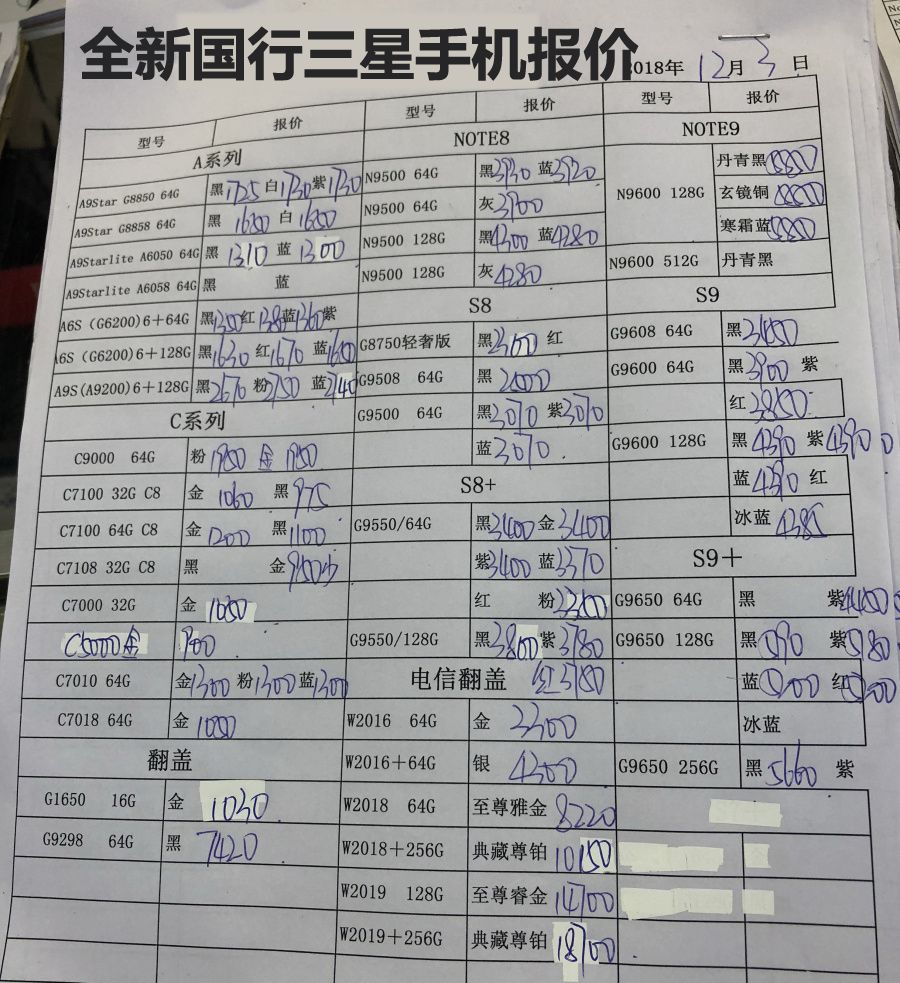 全新国行三星手机报价
2018年 12月 3日
型号 报价
A系列
A9Star G8850 64G 黑1725 白1730紫1730
A9Star G8858 64G 黑 1680 白 1680
A9Starlite A6050 64G 黑 1310 蓝 1300
A9Starlite A6058 64G 黑 蓝
A6S (G6200)6+64G 黑1350红1380蓝1360紫
A6S (G6200)6+128G 黑1630 红1670 蓝1680
A9S(A9200)6+128G 黑2670 粉2750 蓝2740
C系列
C9000 64G 粉 1950 金 1950
C7100 32G C8 金 1060 黑 975
C7100 64G C8 金 1200 黑1100
C7108 32G C8 黑 金950
C7000 32G 金 1080
C5000金 900
C7010 64G 金1300 粉1300蓝1300
C7018 64G 金 1080
翻盖
G1650 16G 金 1030
G9298 64G 黑 7420
型号 报价
NOTE8
N9500 64G 黑3930 蓝3920
N9500 64G 灰3900
N9500 128G 黑4300 蓝4280
N9500 128G 灰4280
S8
G8750轻奢版 黑2300 红
G9508 64G 黑
G9500 64G 黑3070 紫3070
蓝3070
S8+
G9550/64G 黑3400金3400
紫3400 蓝3370
红 粉3300
G9550/128G 黑3800紫3780
电信翻盖 红3780
W2016 64G 金 3300
W2016+64G 银 4300
W2018 64G 至尊雅金 8220
W2018+256G 典藏尊铂 10150
W2019 128G 至尊睿金 14700
W2019+256G 典藏尊铂 18700
型号 报价
NOTE9
N9600 128G 丹青黑
玄镜铜
寒霜蓝
N9600 512G 丹青黑
S9
G9608 64G 黑3450
G9600 64G 黑3900 紫
红3850
G9600 128G 黑4390 紫4390
蓝4390 红
冰蓝 4385
S9+
G9650 64G 黑 紫4450
G9650 128G 黑5190 紫5180
蓝5200 红5200
冰蓝
G9650 256G 黑5660 紫